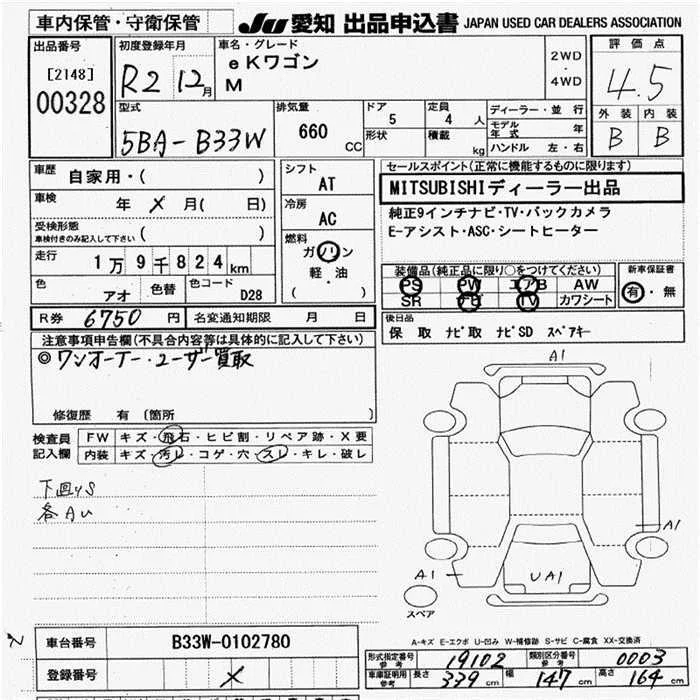 車内保管・守衛保管 JU 愛知 出品申込書 JAPAN USED CAR DEALERS ASSOCIATION
出品番号 初度登録年月 車名・グレード 評価点
[2148] R2 12月 eKワゴン 2WD・4WD 4.5
00328 M 外装 内装
型式 排気量 ドア 定員 ディーラー・並行 B B
5BA-B33W 660 CC 5 4人 モデル年式 年
形状 積載 kg ハンドル 左・右
車歴 自家用・( ) シフト AT セールスポイント(正常に機能するものに限ります)
車検 年 × 月( 日) 冷房 AC MITSUBISHIディーラー出品
受検形態 純正9インチナビ・TV・バックカメラ
車検付きのみ記入して下さい ( ) 燃料 E-アシスト・ASC・シートヒーター
走行 1万9千824km ガソリン
軽・油
( )
色 アオ 色替 色コード D28 装備品(純正品に限り○をつけてください) 新車保証書
PS PW エアB AW 有・無
SR ナビ TV カワシート
R券 6750円 名変通知期限 月 日 後日品
保 取 ナビ取 ナビSD スペアキー
注意事項申告欄(不具合内容等は具体的に記入して下さい)
◎ワンオーナー・ユーザー買取
修復歴 有 〔箇所 〕
検査員 FW キズ・飛石・ヒビ割・リペア跡・X要
記入欄 内装 キズ・汚レ・コゲ・穴・スレ・キレ・破レ
A1
下回りS
各AU
A1
A1 UA1
スペア
A-キズ E-エクボ U-凹み W-補修跡 S-サビ C-腐食 XX-交換済
車台番号 B33W-0102780
登録番号 ×
形式指定番号 参考 19102 類別区分番号 参考 0003
車庫証明用 参考 長さ 339cm 幅 147cm 高さ 164cm